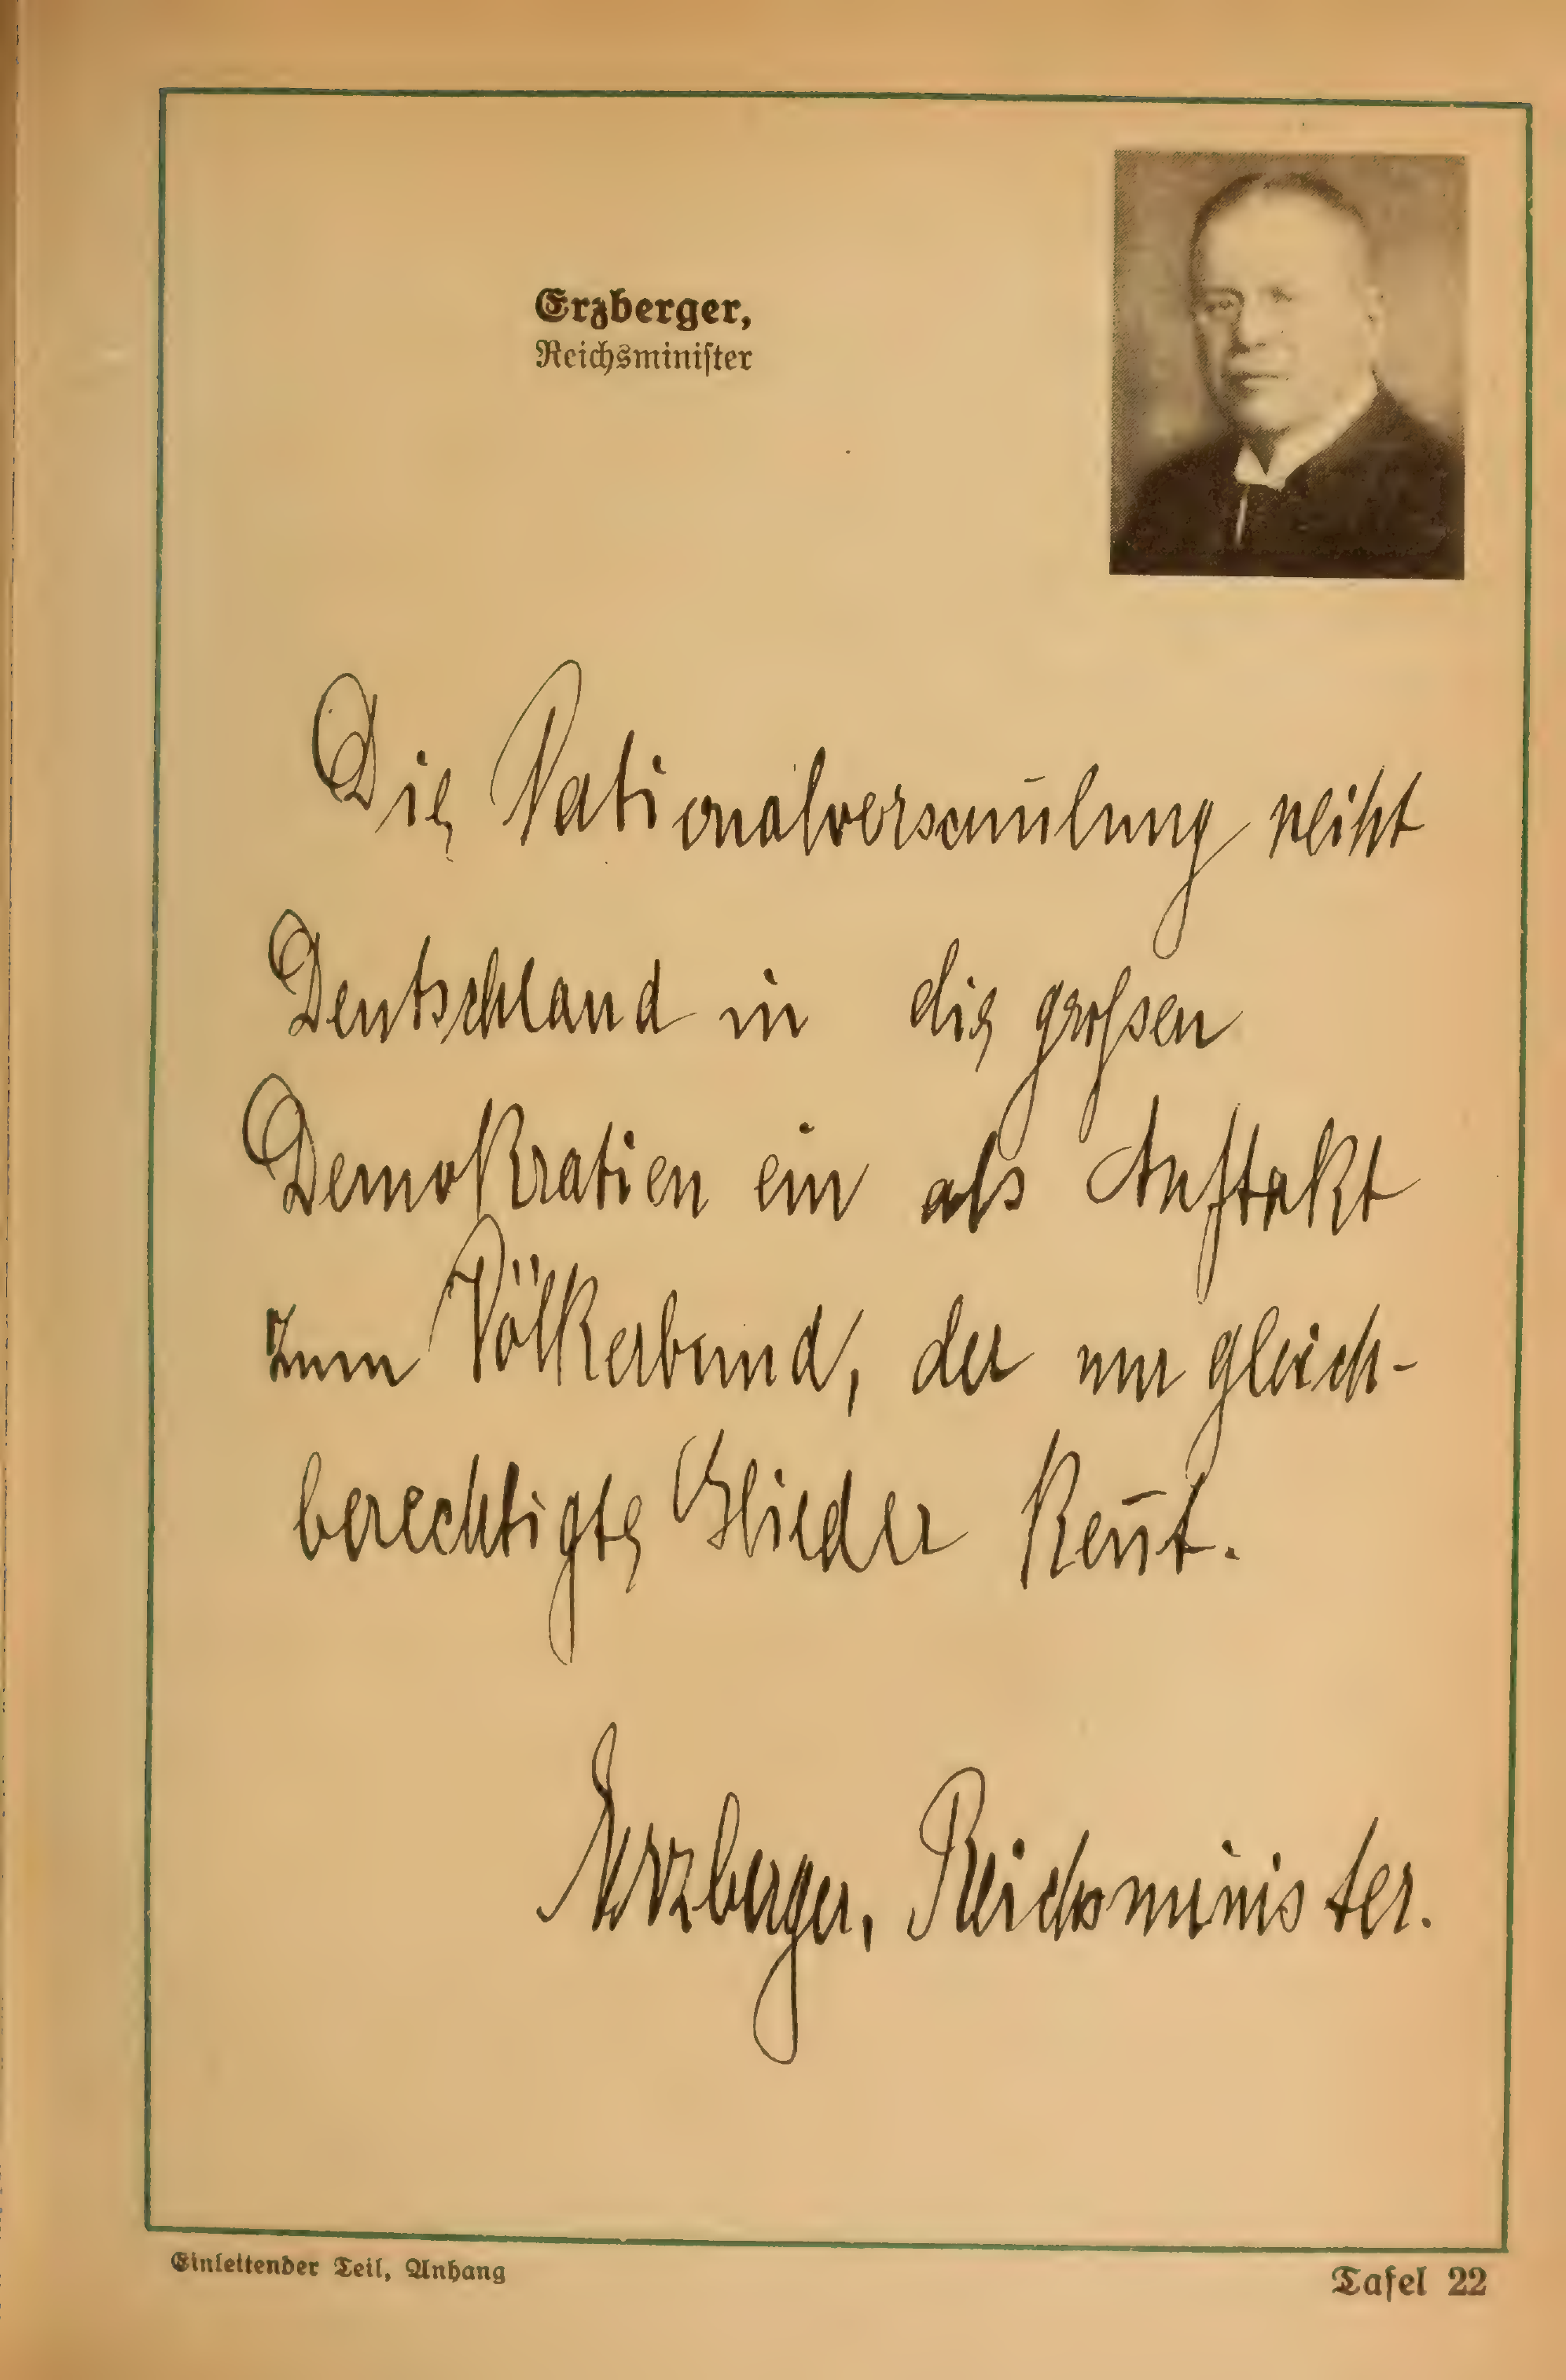 Erzberger,
Reichsminister
Die Nationalversam̄lung reiht
Deutschland in die grossen
Demokratien ein als Auftakt
zum Völkerbund, der nur gleich-
berechtigte Glieder ken̄t.
Erzberger, Reichsminister.
Einleitender Teil, Anhang
Tafel 22